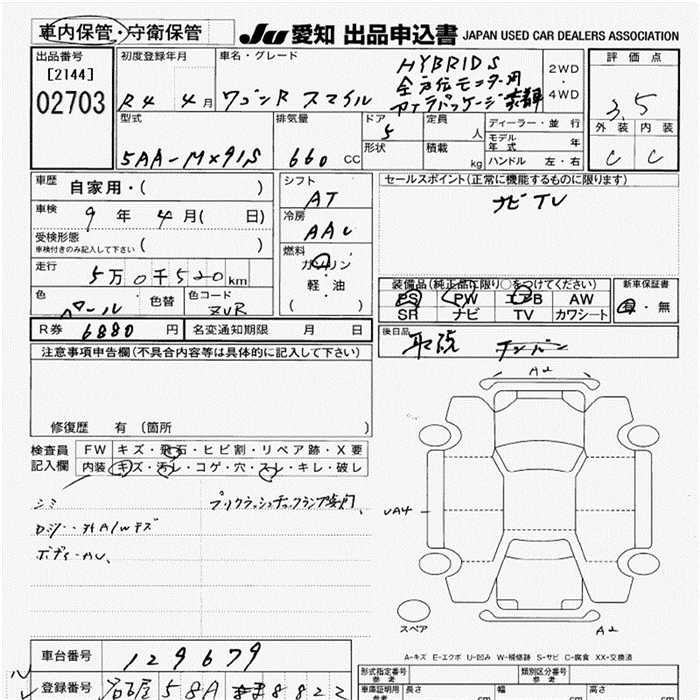 車内保管・守衛保管 JU 愛知 出品申込書 JAPAN USED CAR DEALERS ASSOCIATION
出品番号 初度登録年月 車名・グレード 評価点
[2144] 02703 R4 4月 ワゴンR スマイル HYBRID S 2WD 4WD 3.5
全方位モニター用
外装 内装
型式 排気量 ドア 5 定員 人 ディーラー・並行
モデル年式 年
形状 積載 kg ハンドル 左・右
5AA-MX91S 660 CC C C
車歴 自家用・( ) シフト AT セールスポイント(正常に機能するものに限ります)
ナビ TV
車検 9年 4月( 日) 冷房 AAC
受検形態 ( )
車検付きのみ記入して下さい
燃料 ガソリン
軽・油
( )
走行 5万0千520km
装備品(純正品に限り○をつけてください) 新車保証書
PS PW エアB AW 有・無
SR ナビ TV カワシート
色 パール 色替 色コード ZVR
R券 6880円 名変通知期限 月 日
後日品 取説
注意事項申告欄(不具合内容等は具体的に記入して下さい)
修復歴 有 (箇所 )
検査員記入欄 FW キズ・飛石・ヒビ割・リペア跡・X要
内装 キズ・汚レ・コゲ・穴・スレ・キレ・破レ
シミ
A2
UA4
スペア
A2
A-キズ E-エクボ U-凹み W-補修跡 S-サビ C-腐食 XX-交換済
車台番号 129679
登録番号 名古屋 58A 8822
形式指定番号 参考 類別区分番号 参考
車庫証明用 参考 長さ cm 幅 cm 高さ cm